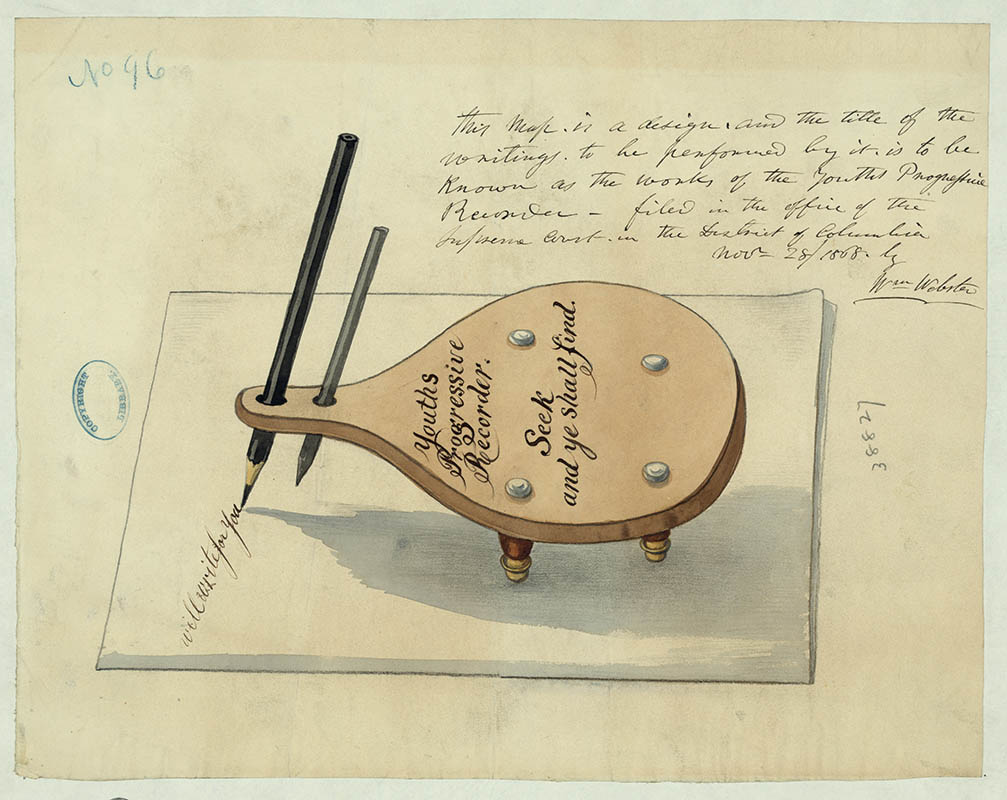 No 96
This Map. is a design. and the title of the
writings. to be performed by it. is to be
Known as the works of the Youths Progressive
Recorder – filed in the office of the
Supreme Court. in the District of Columbia
Nov 28/1868. by
Wm Webster
Youths
Progressive
Recorder.
Seek
and ye shall find.
will write for You
COPYRIGHT
LIBRARY.
38827